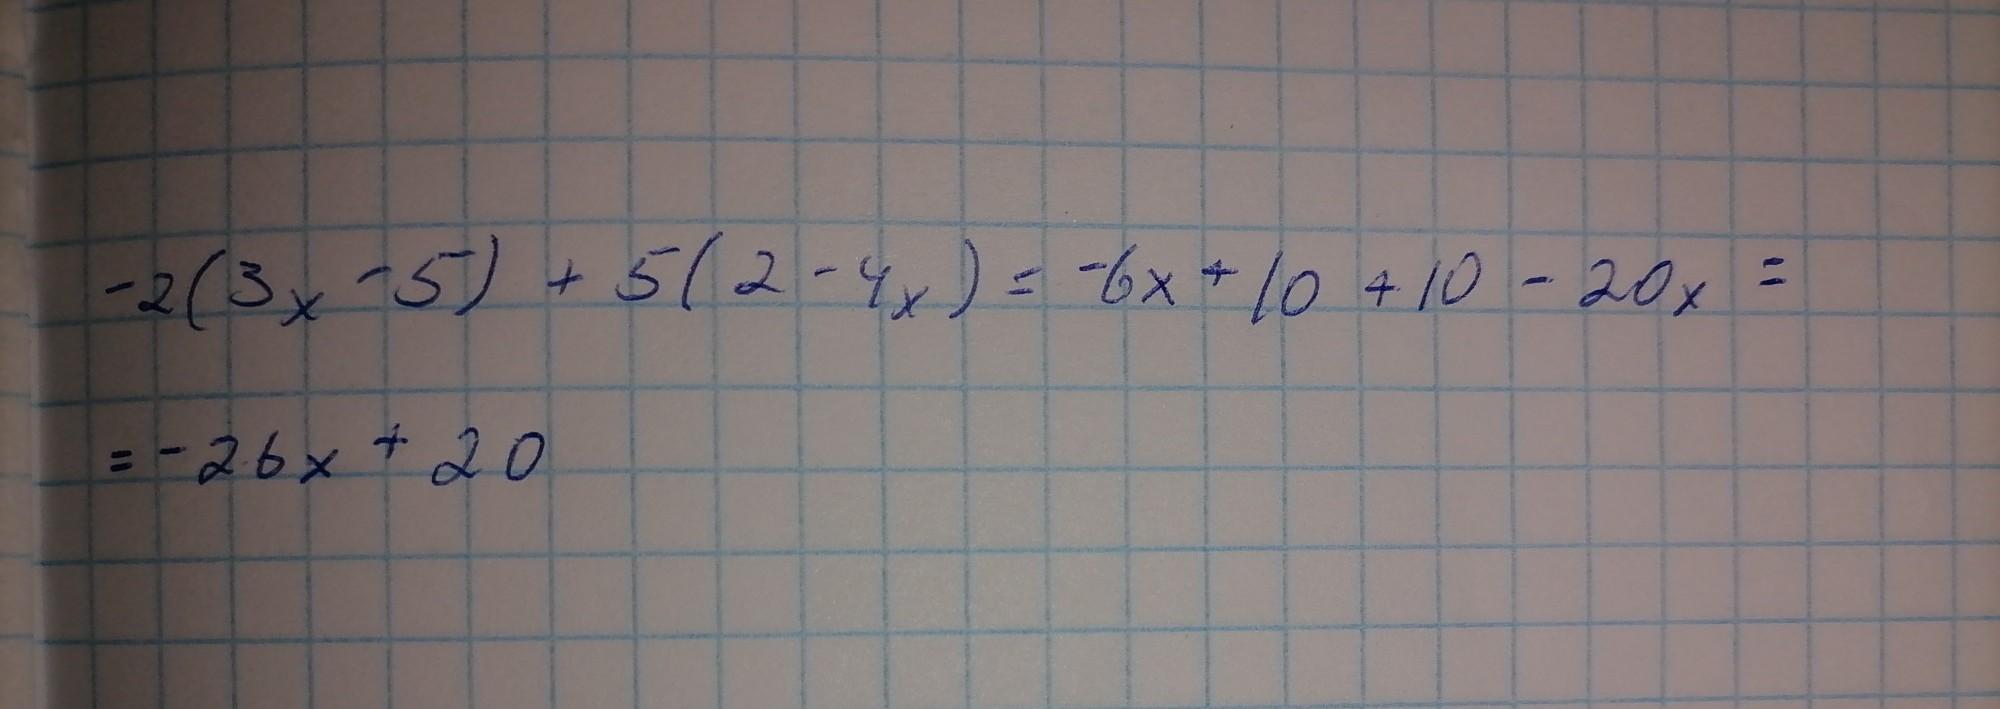 -2(3x-5) + 5(2-4x) = -6x + 10 + 10 - 20x =
= -26x + 20